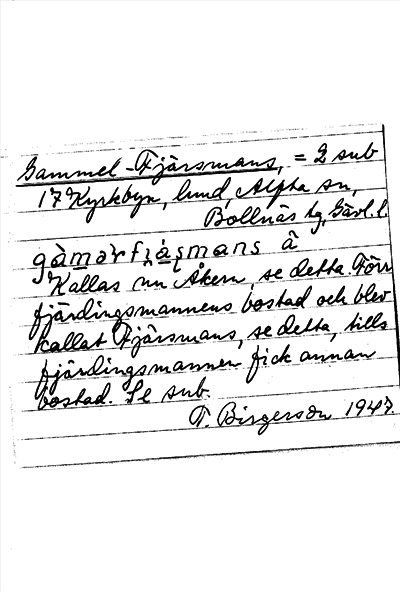 Gammel-Fjärsmans, = 2 sub
17 Kyrkbyn, lund, Alfta sn,
Bollnäs tg, Gävl. l.
gàmərfjäʂmans â
Kallas nu Åkern, se detta. Förr
fjärdingsmannens bostad och blev
kallat Fjärsmans, se detta, tills
fjärdingsmannen fick annan
bostad. Se sub.
T. Birgersson 1947.